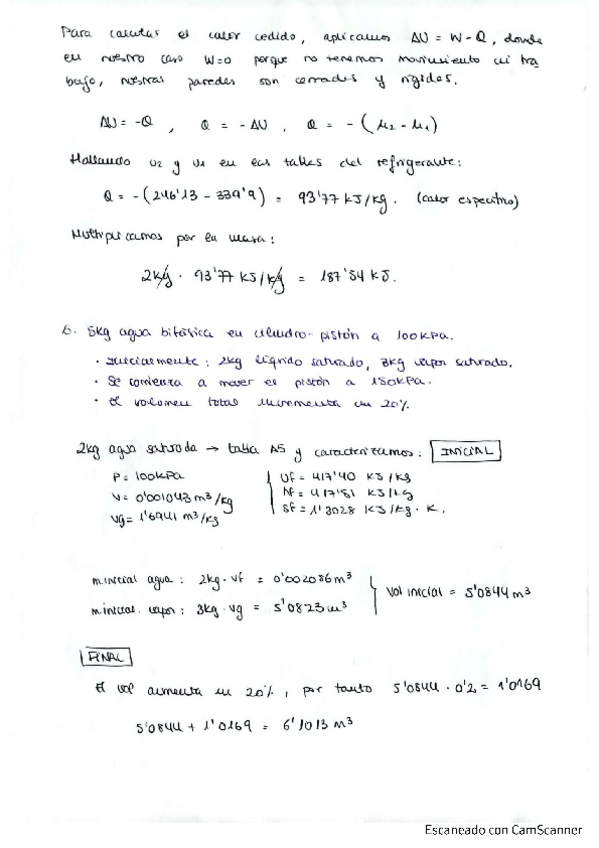 Para calcular el calor cedido, aplicamos ΔU = W - Q, donde
en nuestro caso W=0 porque no tenemos movimiento ni tra
bajo, nuestras paredes son cerradas y rígidas.
ΔU = -Q , Q = -ΔU , Q = -(μ2 - μ1)
Hallando u2 y u1 en las tablas del refrigerante:
Q = -(246'13 - 339'9) = 93'77 KJ/kg. (calor específico)
Multiplicamos por la masa:
2kg · 93'77 KJ/kg = 187'54 KJ.
6. 5kg agua bifásica en cilindro-pistón a 100KPa.
· Inicialmente: 2kg líquido saturado, 3kg vapor saturado.
· Se comienza a mover el pistón a 150KPa.
· El volumen total incrementa un 20%.
2kg agua saturada → tabla A5 y caracterizamos: INICIAL
P = 100KPa
Uf = 417'40 KJ/kg
V = 0'001043 m³/kg
Hf = 417'51 KJ/kg
Vg = 1'6941 m³/kg
Sf = 1'3028 KJ/kg·K.
m.inicial agua: 2kg·vf = 0'002086m³
m.inicial vapor: 3kg·vg = 5'0823m³
Vol inicial = 5'0844m³
FINAL
El vol aumenta un 20%, por tanto 5'0844 · 0'2 = 1'0169
5'0844 + 1'0169 = 6'1013 m³
Escaneado con CamScanner